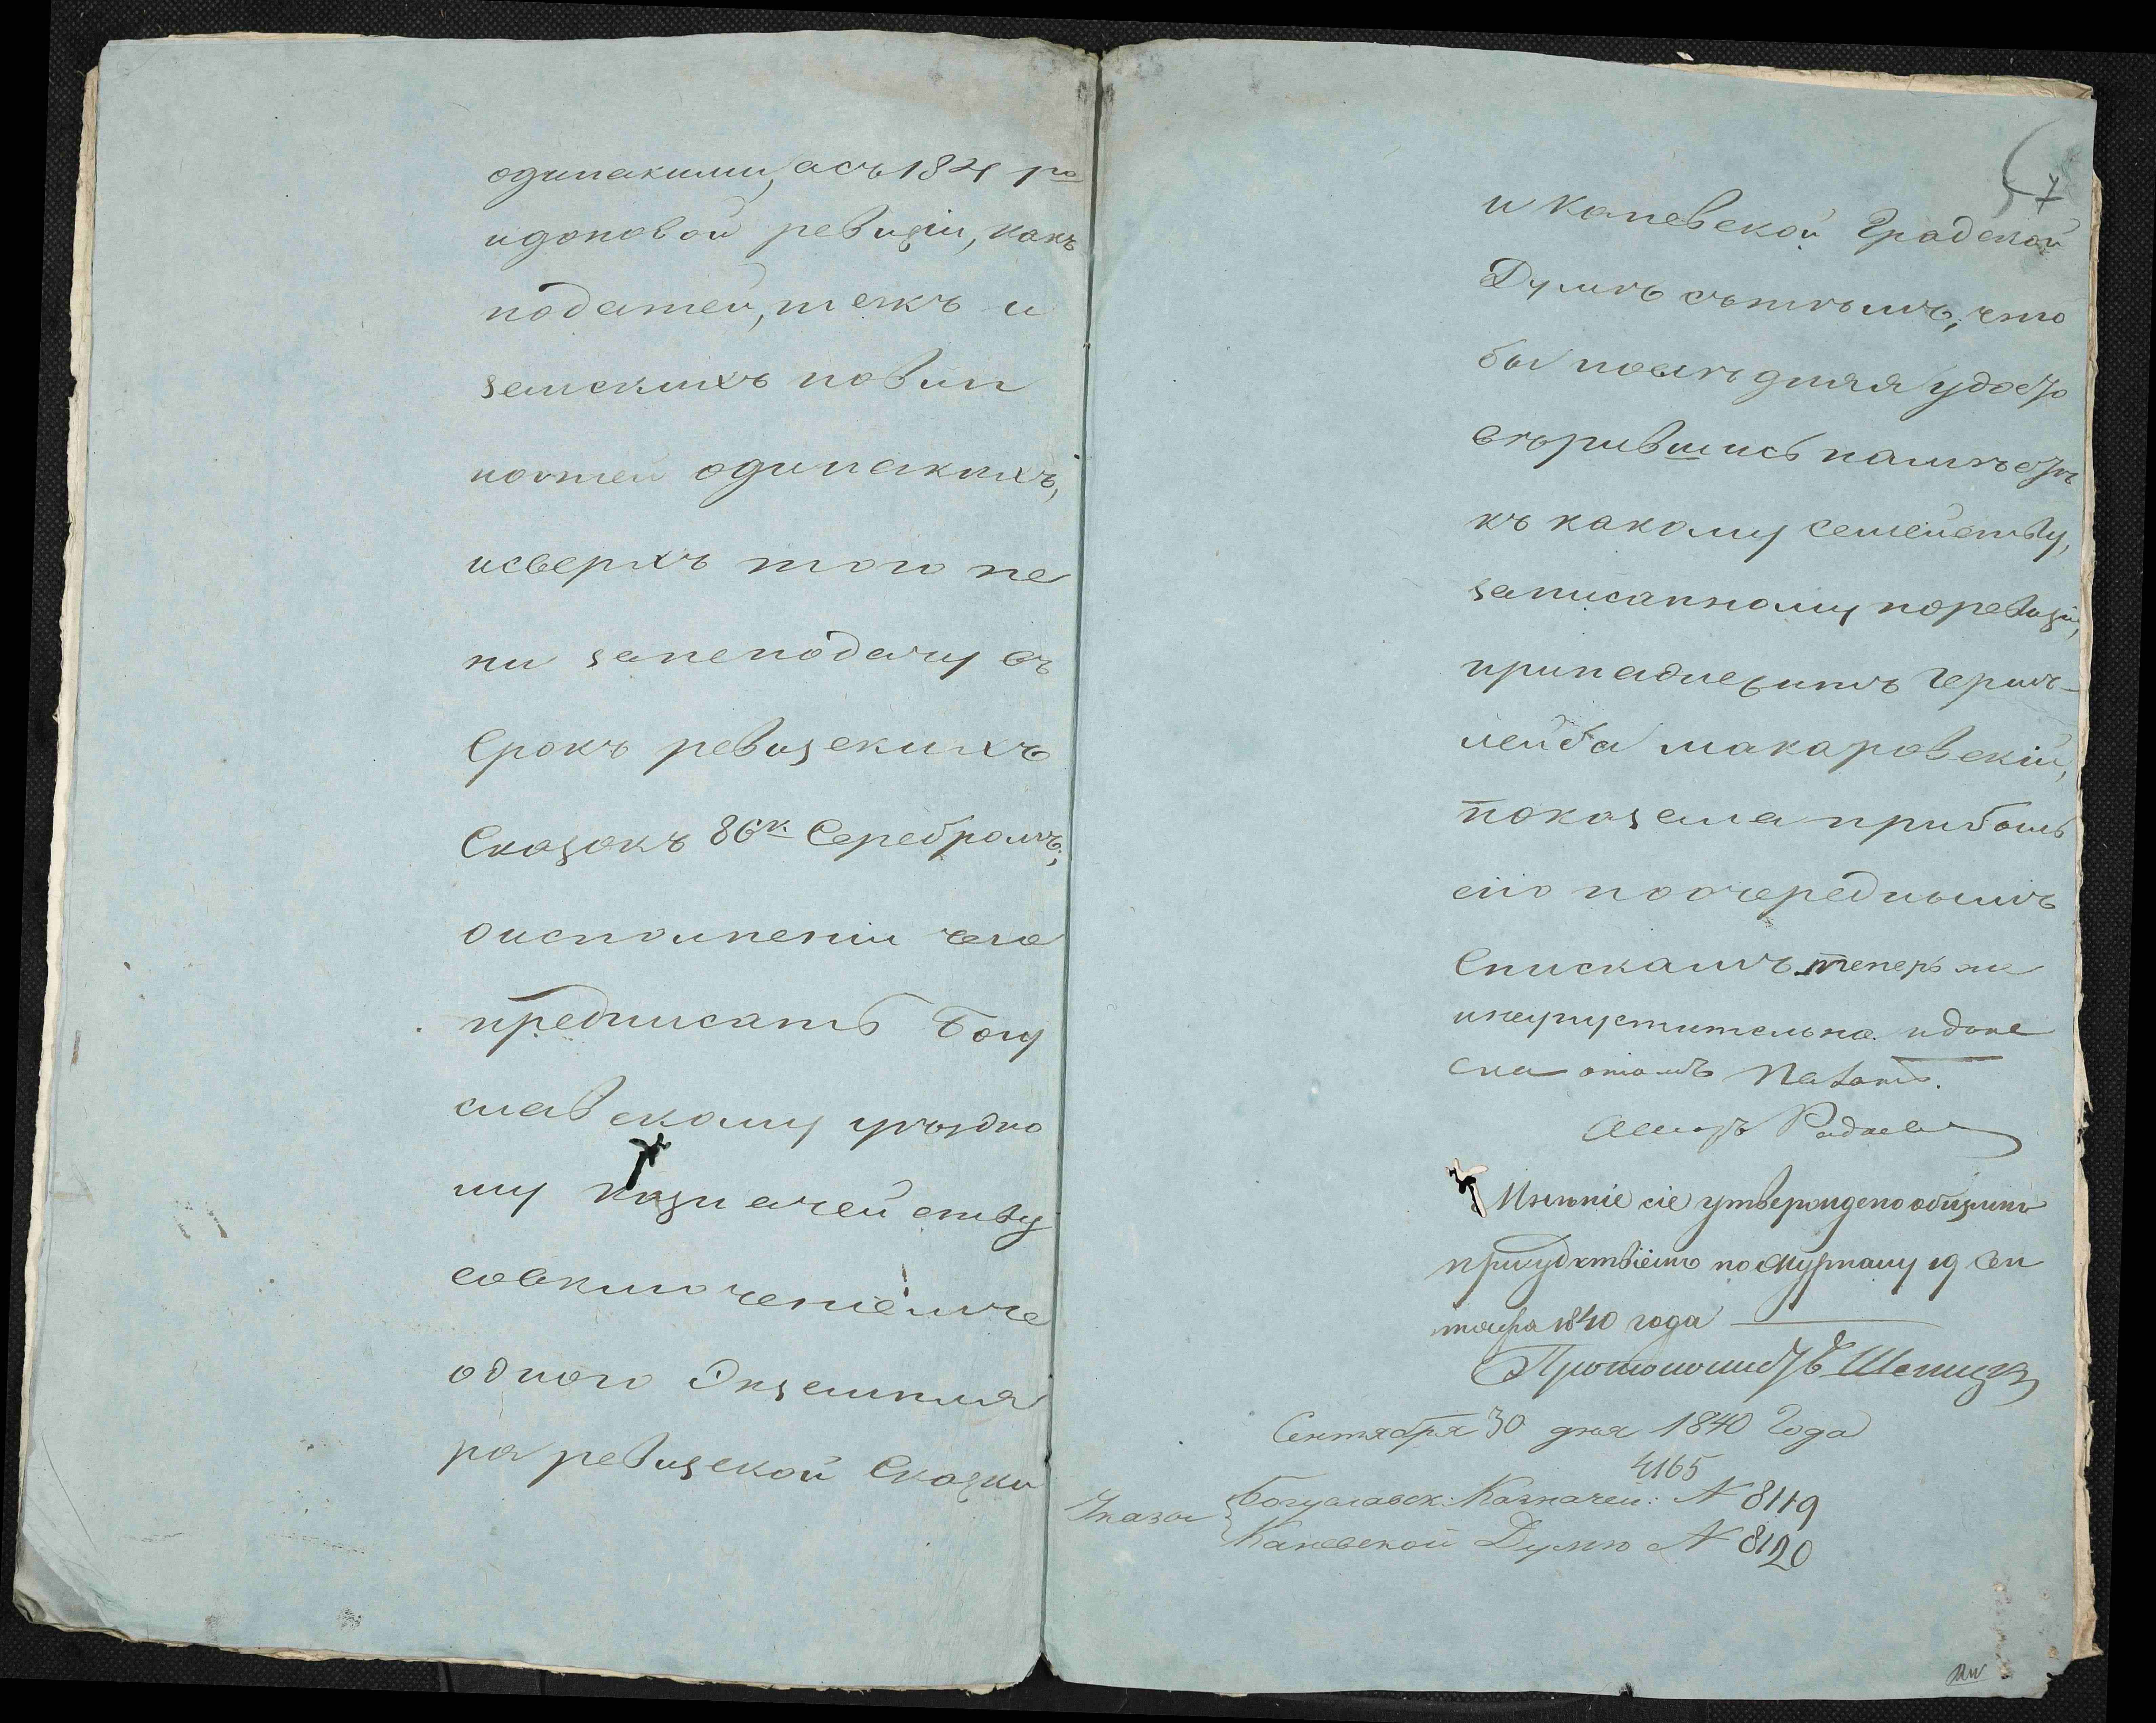 одинакими, а съ 1821 го
и до новой ревизіи, какъ
податей, такъ и
земскихъ повин
ностей одинакихъ,
и сверхъ того пе
ни за неподачу въ
Срокъ ревизскихъ
Сказокъ 86 к. Серебромъ;
о исполненіи чего
предписать Богу
славскому уѣздно
му Казначейству
со включеніемъ
одного Экземпля
ра ревизской Сказки
7
и Каневской Градской
Думѣ съ тѣмъ, что
бы послѣдняя удосто
вѣрившись
къ какому семейству,
записанному по ревизіи,
принадлежитъ Гершъ-
лейба Макаровскій,
показала прибыль
сію по очереднымъ
Спискамъ теперь же
и неупустительно и доне
сла о томъ Палатѣ.
Мнѣніе сіе утверждено общимъ
присудствіемъ по журналу 19 Сен
тября 1840 года
Протоколистъ
Сентября 30 дня 1840 Года
4165
Указы Богуславск: Казначей: № 8119
Каневской Думѣ № 8120